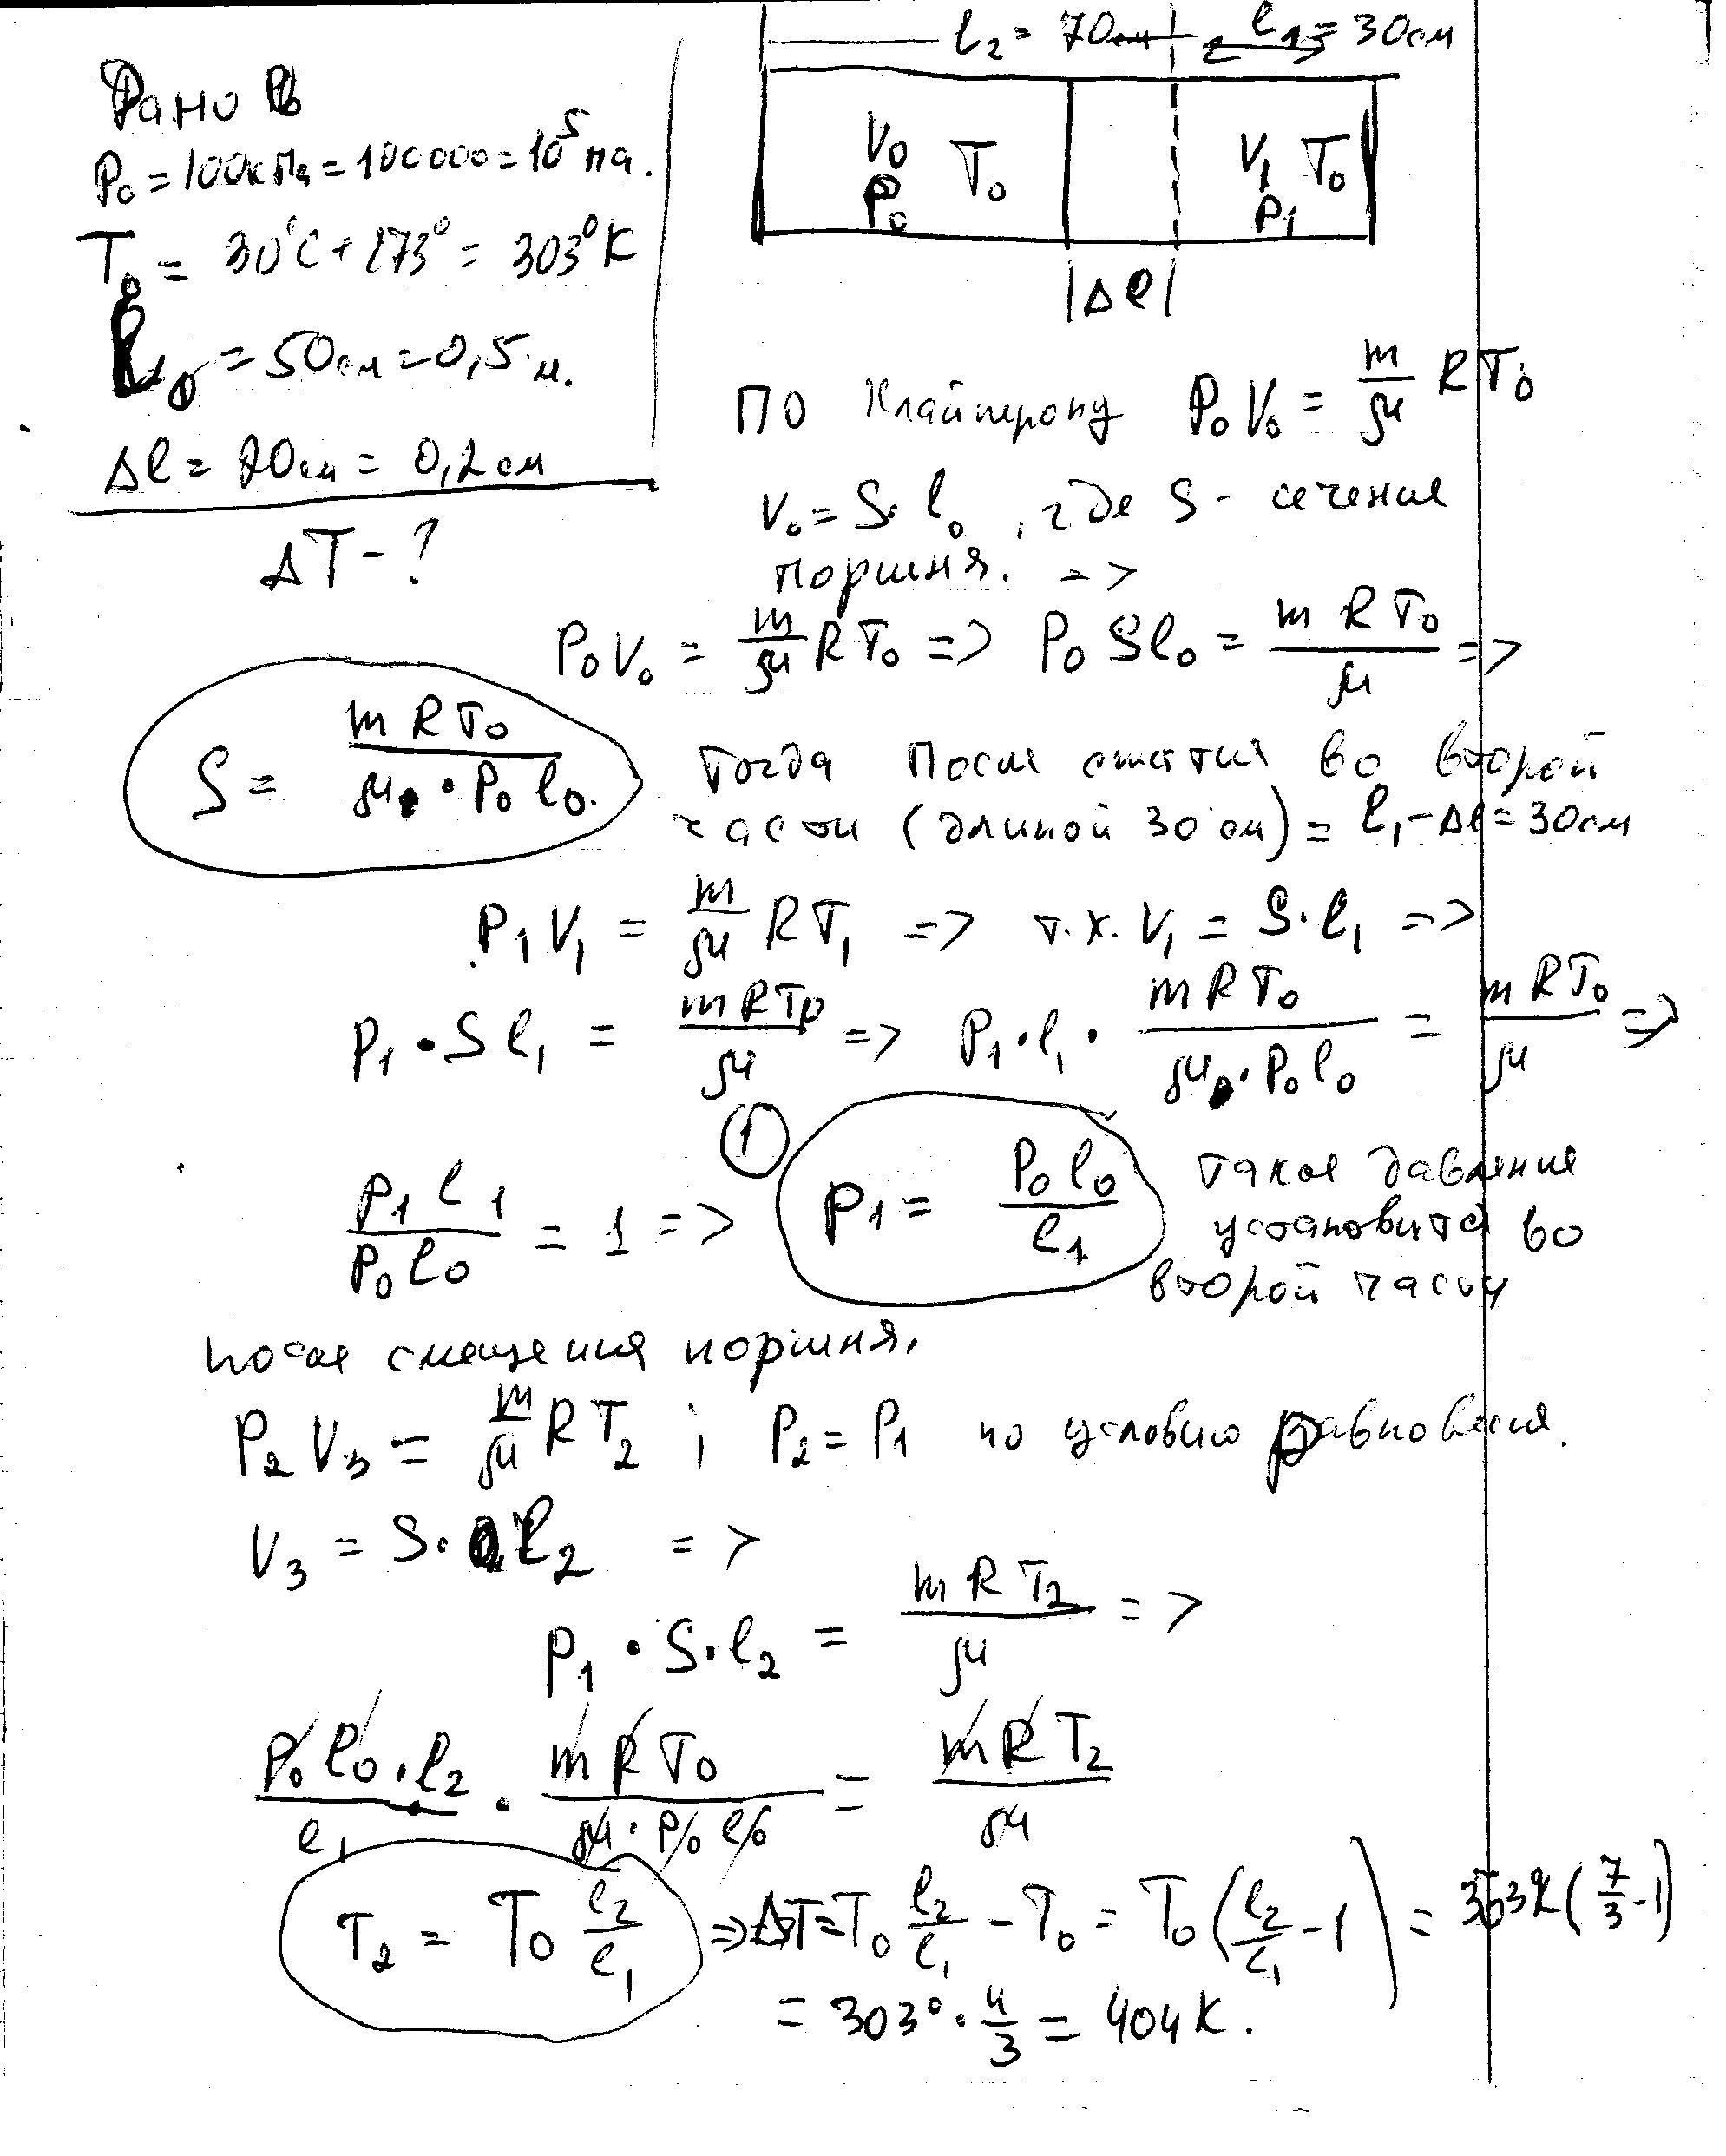 Дано
P₀ = 100кПа = 100000 = 10⁵ па.
T₀ = 30°C + 273° = 303°K
l₀ = 50см = 0,5 м.
Δl = 20см = 0,2 см
ΔT - ?
l₂ = 70см l₁ = 30см
V₀ T₀ V₁ T₀
P₀ P₁
|Δl|
По Клайперону P₀V₀ = m/μ RT₀
V₀ = S·l₀, где S - сечения
поршня. =>
P₀V₀ = m/μ RT₀ => P₀Sl₀ = mRT₀/μ =>
S = mRT₀/μ·P₀l₀. Тогда после сжатия во второй
части (длиной 30 см) = l₁ - Δl = 30см
P₁V₁ = m/μ RT₁ => т.к. V₁ = S·l₁ =>
P₁·Sl₁ = mRT₀/μ => P₁·l₁· mRT₀/μ·P₀l₀ = mRT₀/μ =>
P₁l₁/P₀l₀ = 1 => ① P₁ = P₀l₀/l₁ такое давление
установится во
второй части
после смещения поршня.
P₂V₃ = m/μ RT₂ ; P₂ = P₁ по условию равновесия.
V₃ = S·l₂ =>
P₁·S·l₂ = mRT₂/μ =>
P₀l₀·l₂/l₁ · mRT₀/μ·P₀l₀ = mRT₂/μ
T₂ = T₀ l₂/l₁ => ΔT = T₀ l₂/l₁ - T₀ = T₀(l₂/l₁ - 1) = 303K(7/3 - 1)
= 303°·4/3 = 404K.